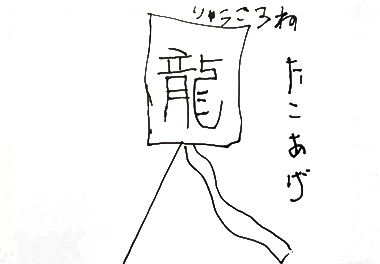 りゅうごろね
龍
たこあげ